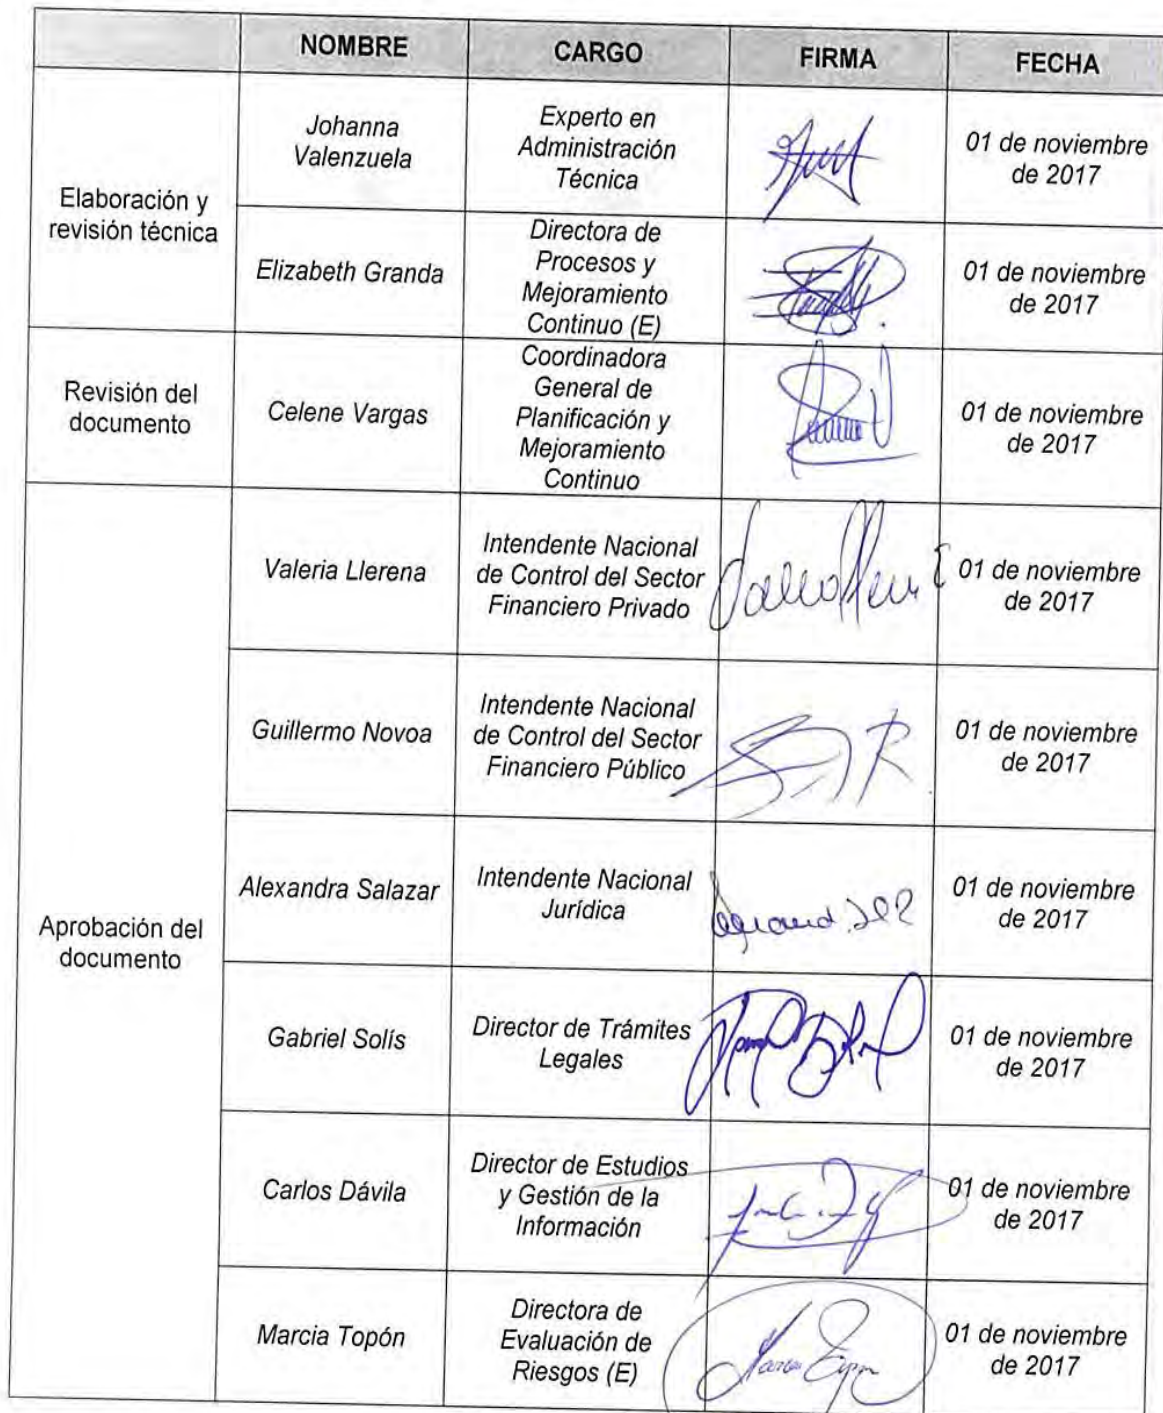 NOMBRE CARGO FIRMA FECHA
Elaboración y
revisión técnica
Johanna
Valenzuela
Experto en
Administración
Técnica
01 de noviembre
de 2017
Elizabeth Granda
Directora de
Procesos y
Mejoramiento
Continuo (E)
01 de noviembre
de 2017
Revisión del
documento
Celene Vargas
Coordinadora
General de
Planificación y
Mejoramiento
Continuo
01 de noviembre
de 2017
Aprobación del
documento
Valeria Llerena
Intendente Nacional
de Control del Sector
Financiero Privado
01 de noviembre
de 2017
Guillermo Novoa
Intendente Nacional
de Control del Sector
Financiero Público
01 de noviembre
de 2017
Alexandra Salazar
Intendente Nacional
Jurídica
01 de noviembre
de 2017
Gabriel Solís
Director de Trámites
Legales
01 de noviembre
de 2017
Carlos Dávila
Director de Estudios
y Gestión de la
Información
01 de noviembre
de 2017
Marcia Topón
Directora de
Evaluación de
Riesgos (E)
01 de noviembre
de 2017